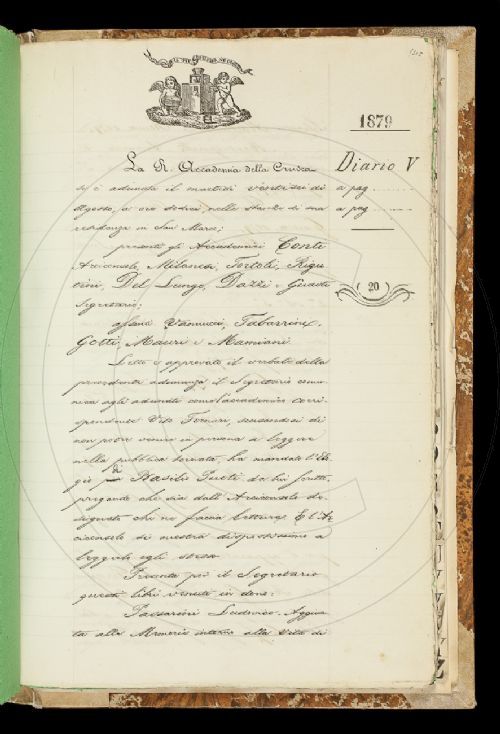 1879
Diario V
a pag
a pag
20
La R. Accademia della Crusca
si è adunata il martedì ventisei di
Agosto, a ore dodici nelle stanze di sua
residenza in San Marco;
presenti gli Accademici Conti
Arciconsolo, Milanesi, Tortoli, Rigu-
tini, Del Lungo, Dazzi e Guasti
Segretario;
assenti Vannucci, Tabarrini,
Gotti, Mauri e Mamiani.
Letto e approvato il verbale della
precedente adunanza, il Segretario comu-
nica agli adunati come l'accademico corri-
spondente Vito Fornari, scusandosi di
non poter venire in persona a leggere
nella pubblica tornata, ha mandato l'Elo-
gio di Basilio Puoti da lui scritto,
pregando che sia dall'Arciconsolo de-
signato chi ne faccia lettura. E l'Ar-
ciconsolo si mostra dispostissimo a
leggerlo egli stesso.
Presenta poi il Segretario
questi libri venuti in dono:
Passerini Ludovico. Aggiun-
ta alla Memoria intorno alla Vita di